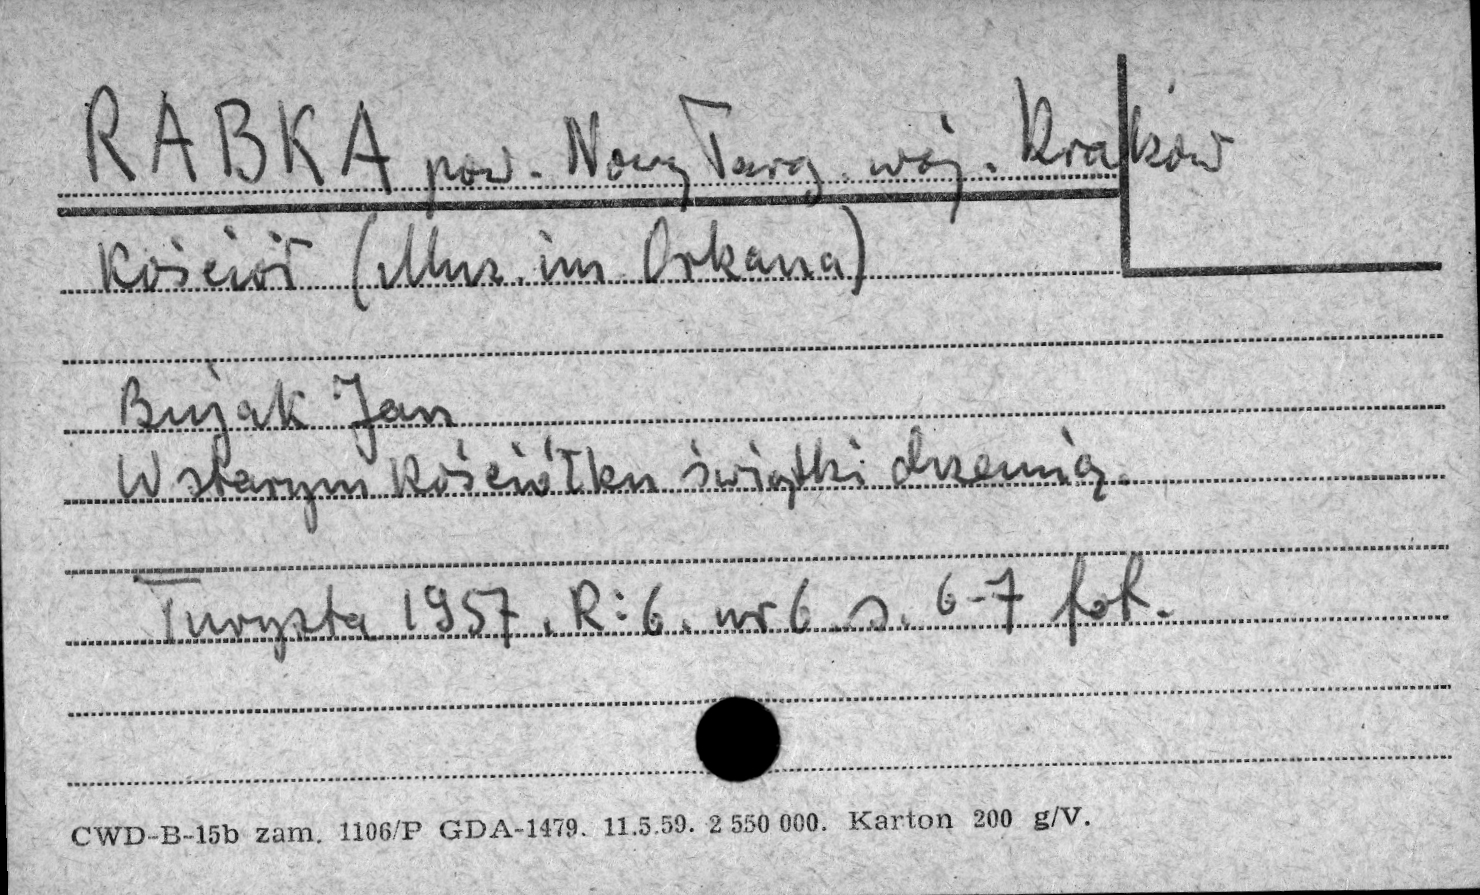 RABKA pow. Nowy Targ. woj. Kraków
Kościół (Muz. im Orkana)
Bujak Jan
W starym kościółku świątki drzemią.
Turysta 1957. R:6. nr 6 s. 6-7 fot.
CWD-B-15b zam. 1106/P GDA-1479. 11.5.59. 2 550 000. Karton 200 g/V.